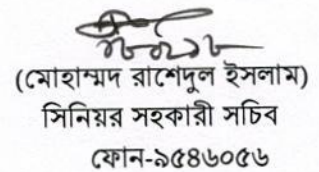 (মোহাম্মদ রাশেদুল ইসলাম)
সিনিয়র সহকারী সচিব
ফোন-৯৫৪৬০৫৬